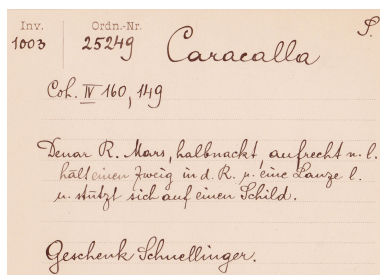 Inv. Ordn.-Nr. S.
1003 25249 Caracalla
Coh. IV 160, 149
Denar R. Mars, halbnackt, aufrecht n. l.
hält einen Zweig in d. R. u. eine Lanze l.
u. stützt sich auf einen Schild.
Geschenk Schnellinger.